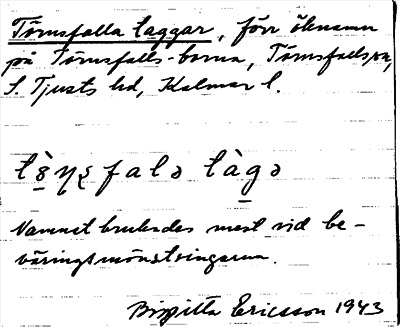 Törnsfalla taggar, förr öknamn
på Törnsfalls-borna, Törnsfalls sn,
S. Tjusts hd, Kalmar l.
tö̀ṇṣfalə tàgə
Namnet brukades mest vid be-
väringsmönstringarna.
Birgitta Ericsson 1943